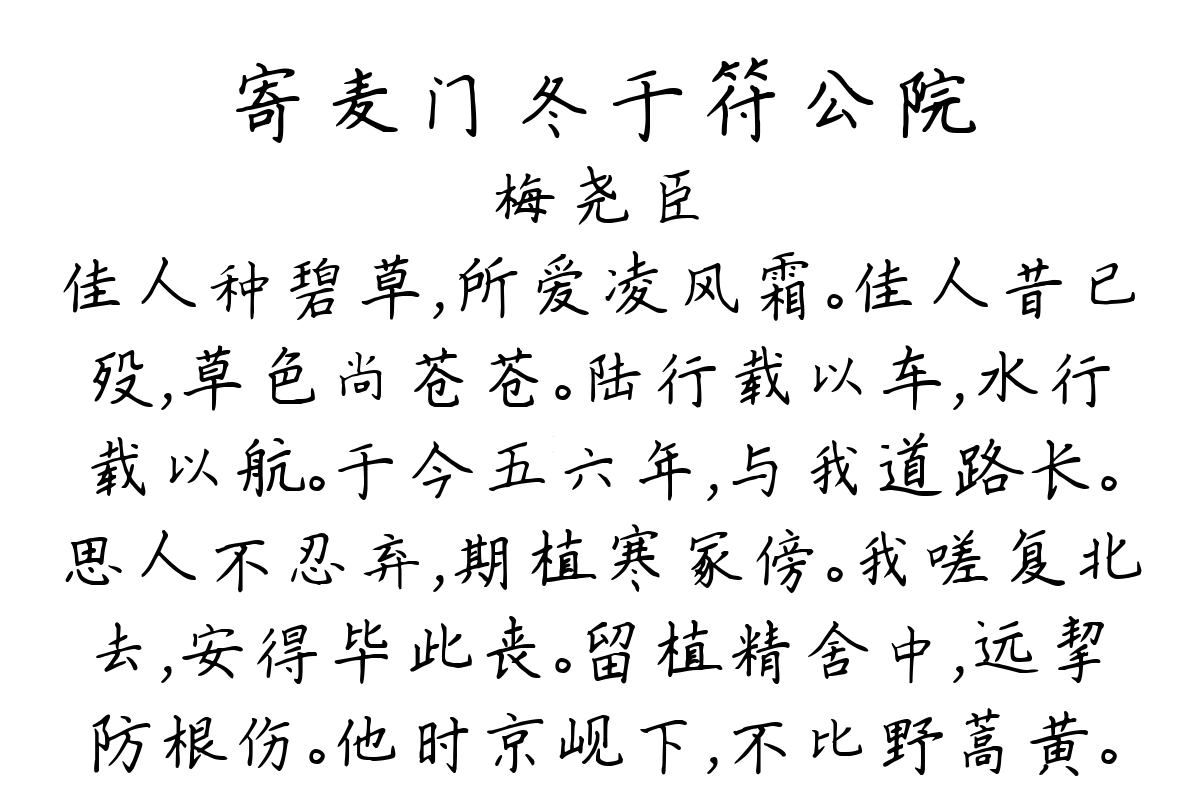 寄麦门冬于符公院
梅尧臣
佳人种碧草,所爱凌风霜。佳人昔已
殁,草色尚苍苍。陆行载以车,水行
载以航。于今五六年,与我道路长。
思人不忍弃,期植寒冢傍。我嗟复北
去,安得毕此丧。留植精舍中,远挈
防根伤。他时京岘下,不比野蒿黄。